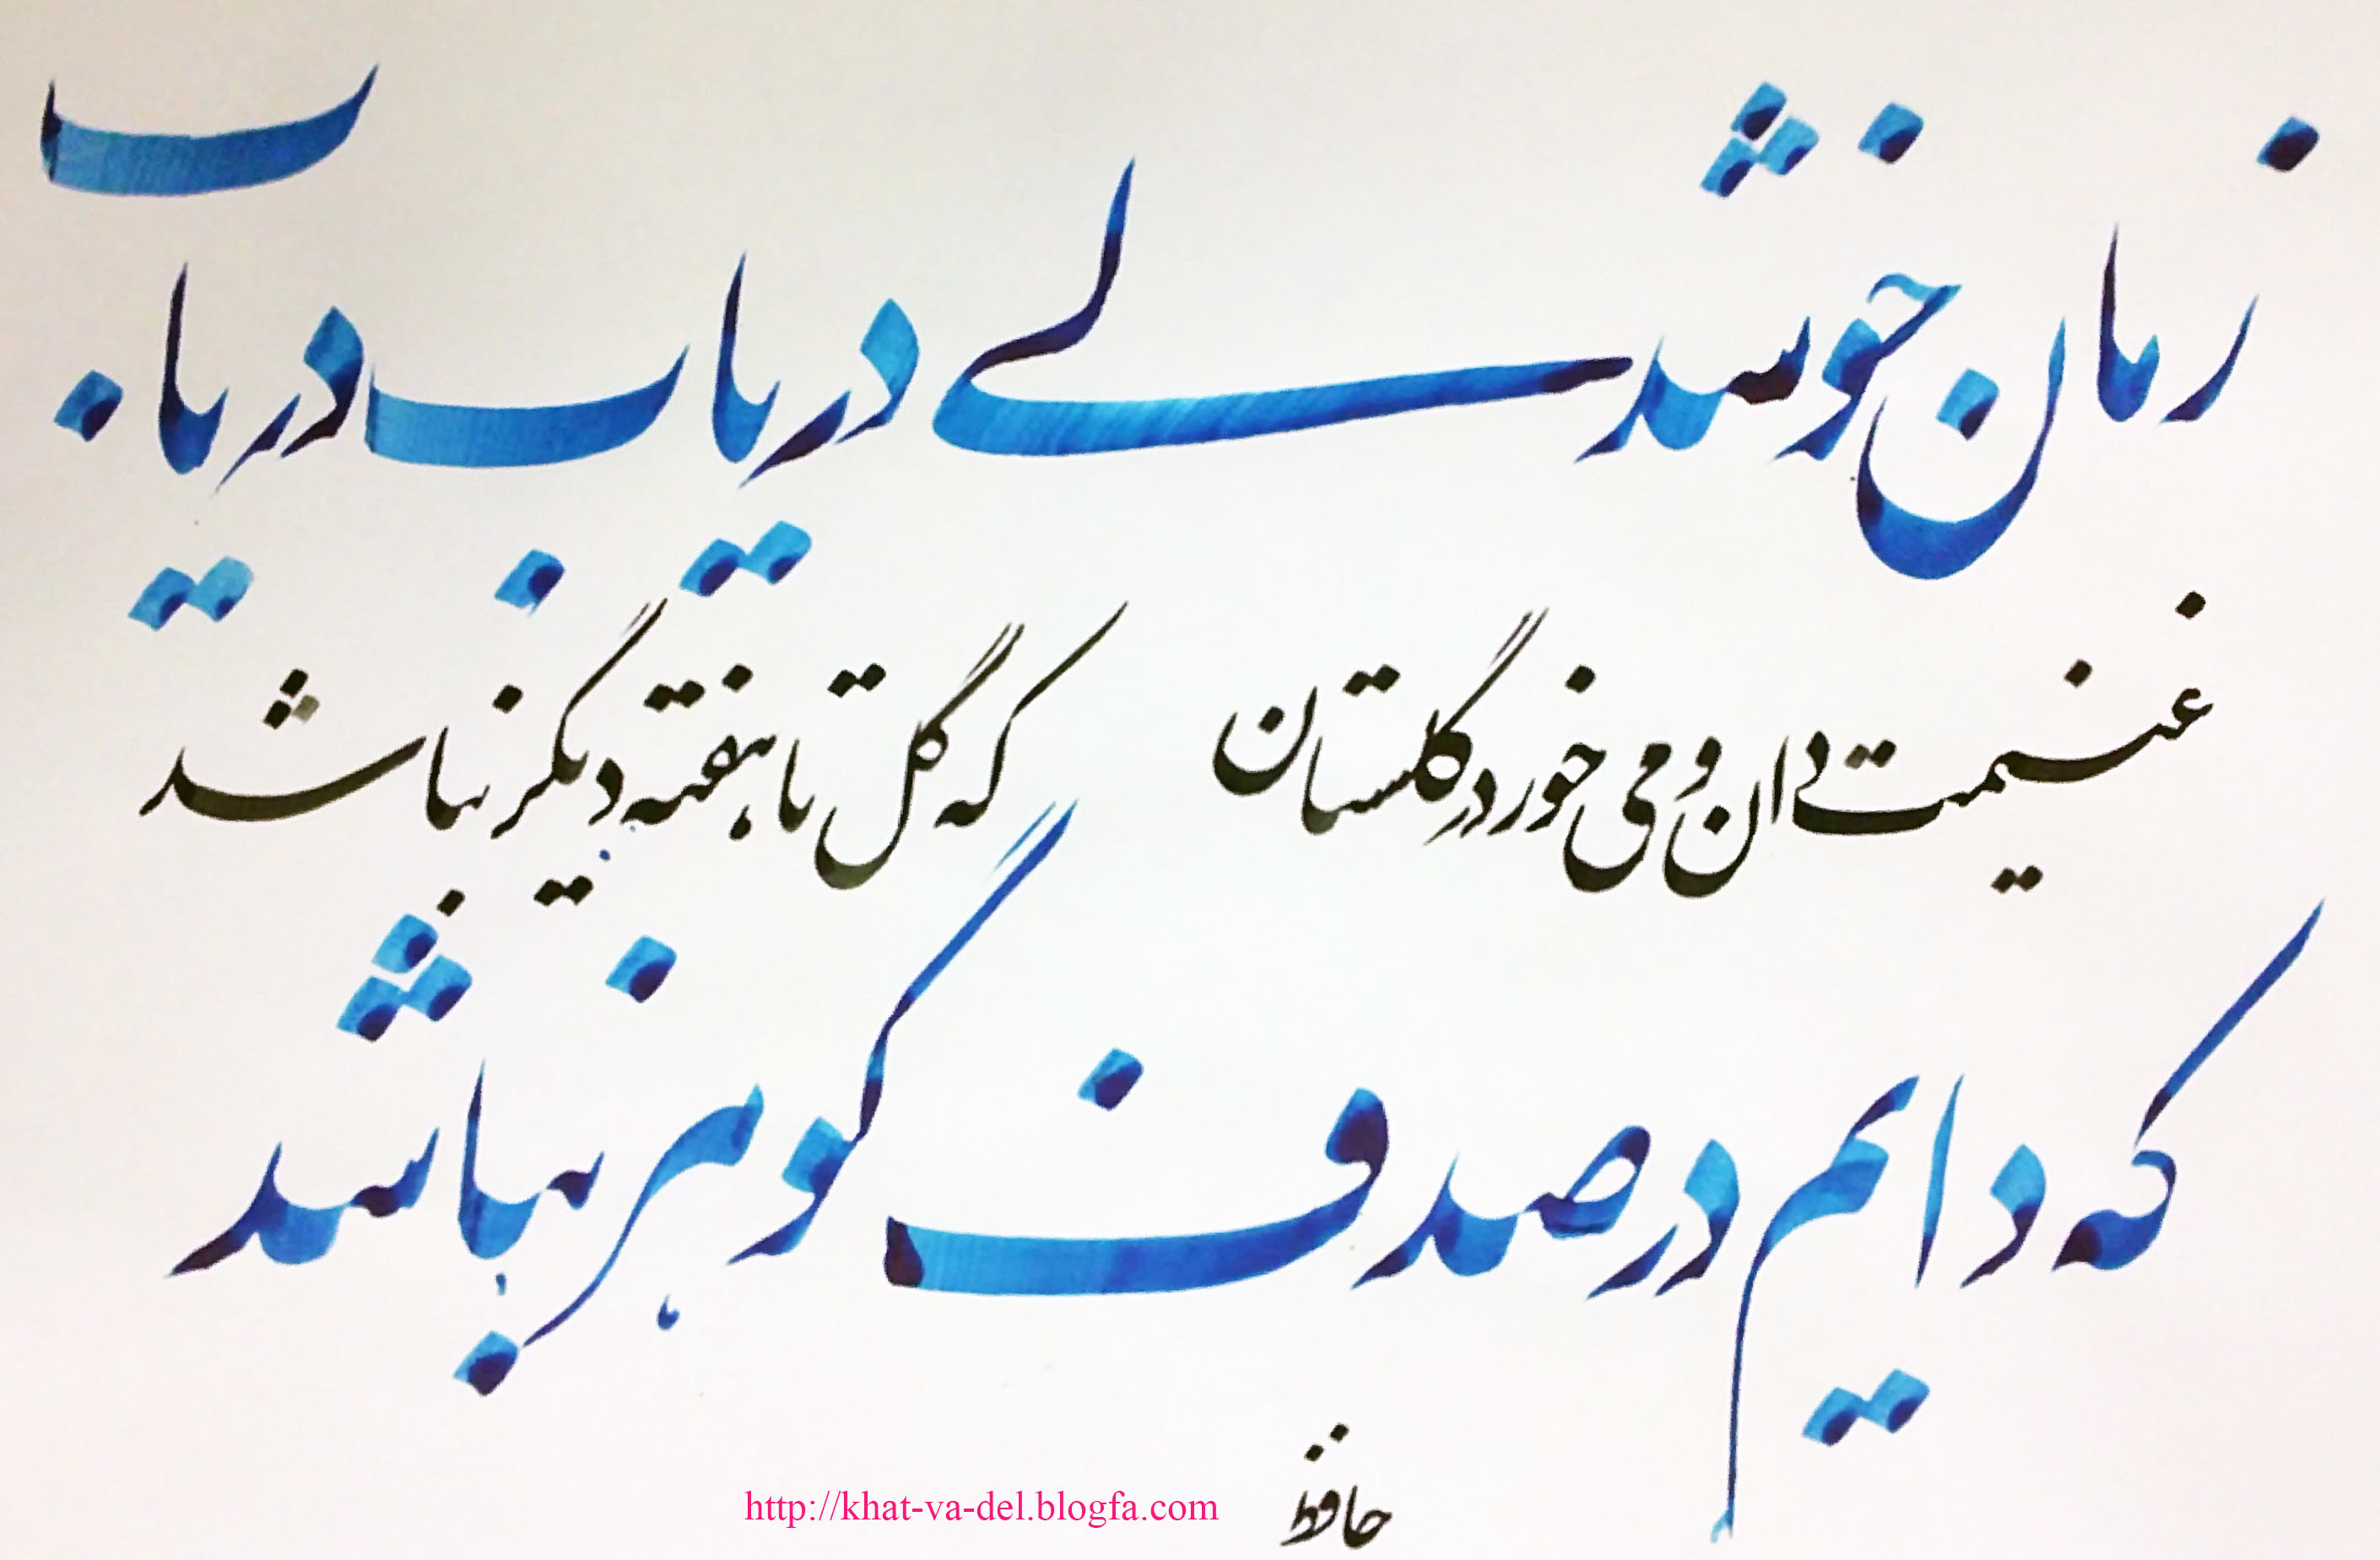 زمان خوشدلی دریاب دریاب
غنیمت دان و می خور در گلستان که گل تا هفته دیگر نباشد
که دایم در صدف گوهر نباشد
حافظ
http://khat-va-del.blogfa.com